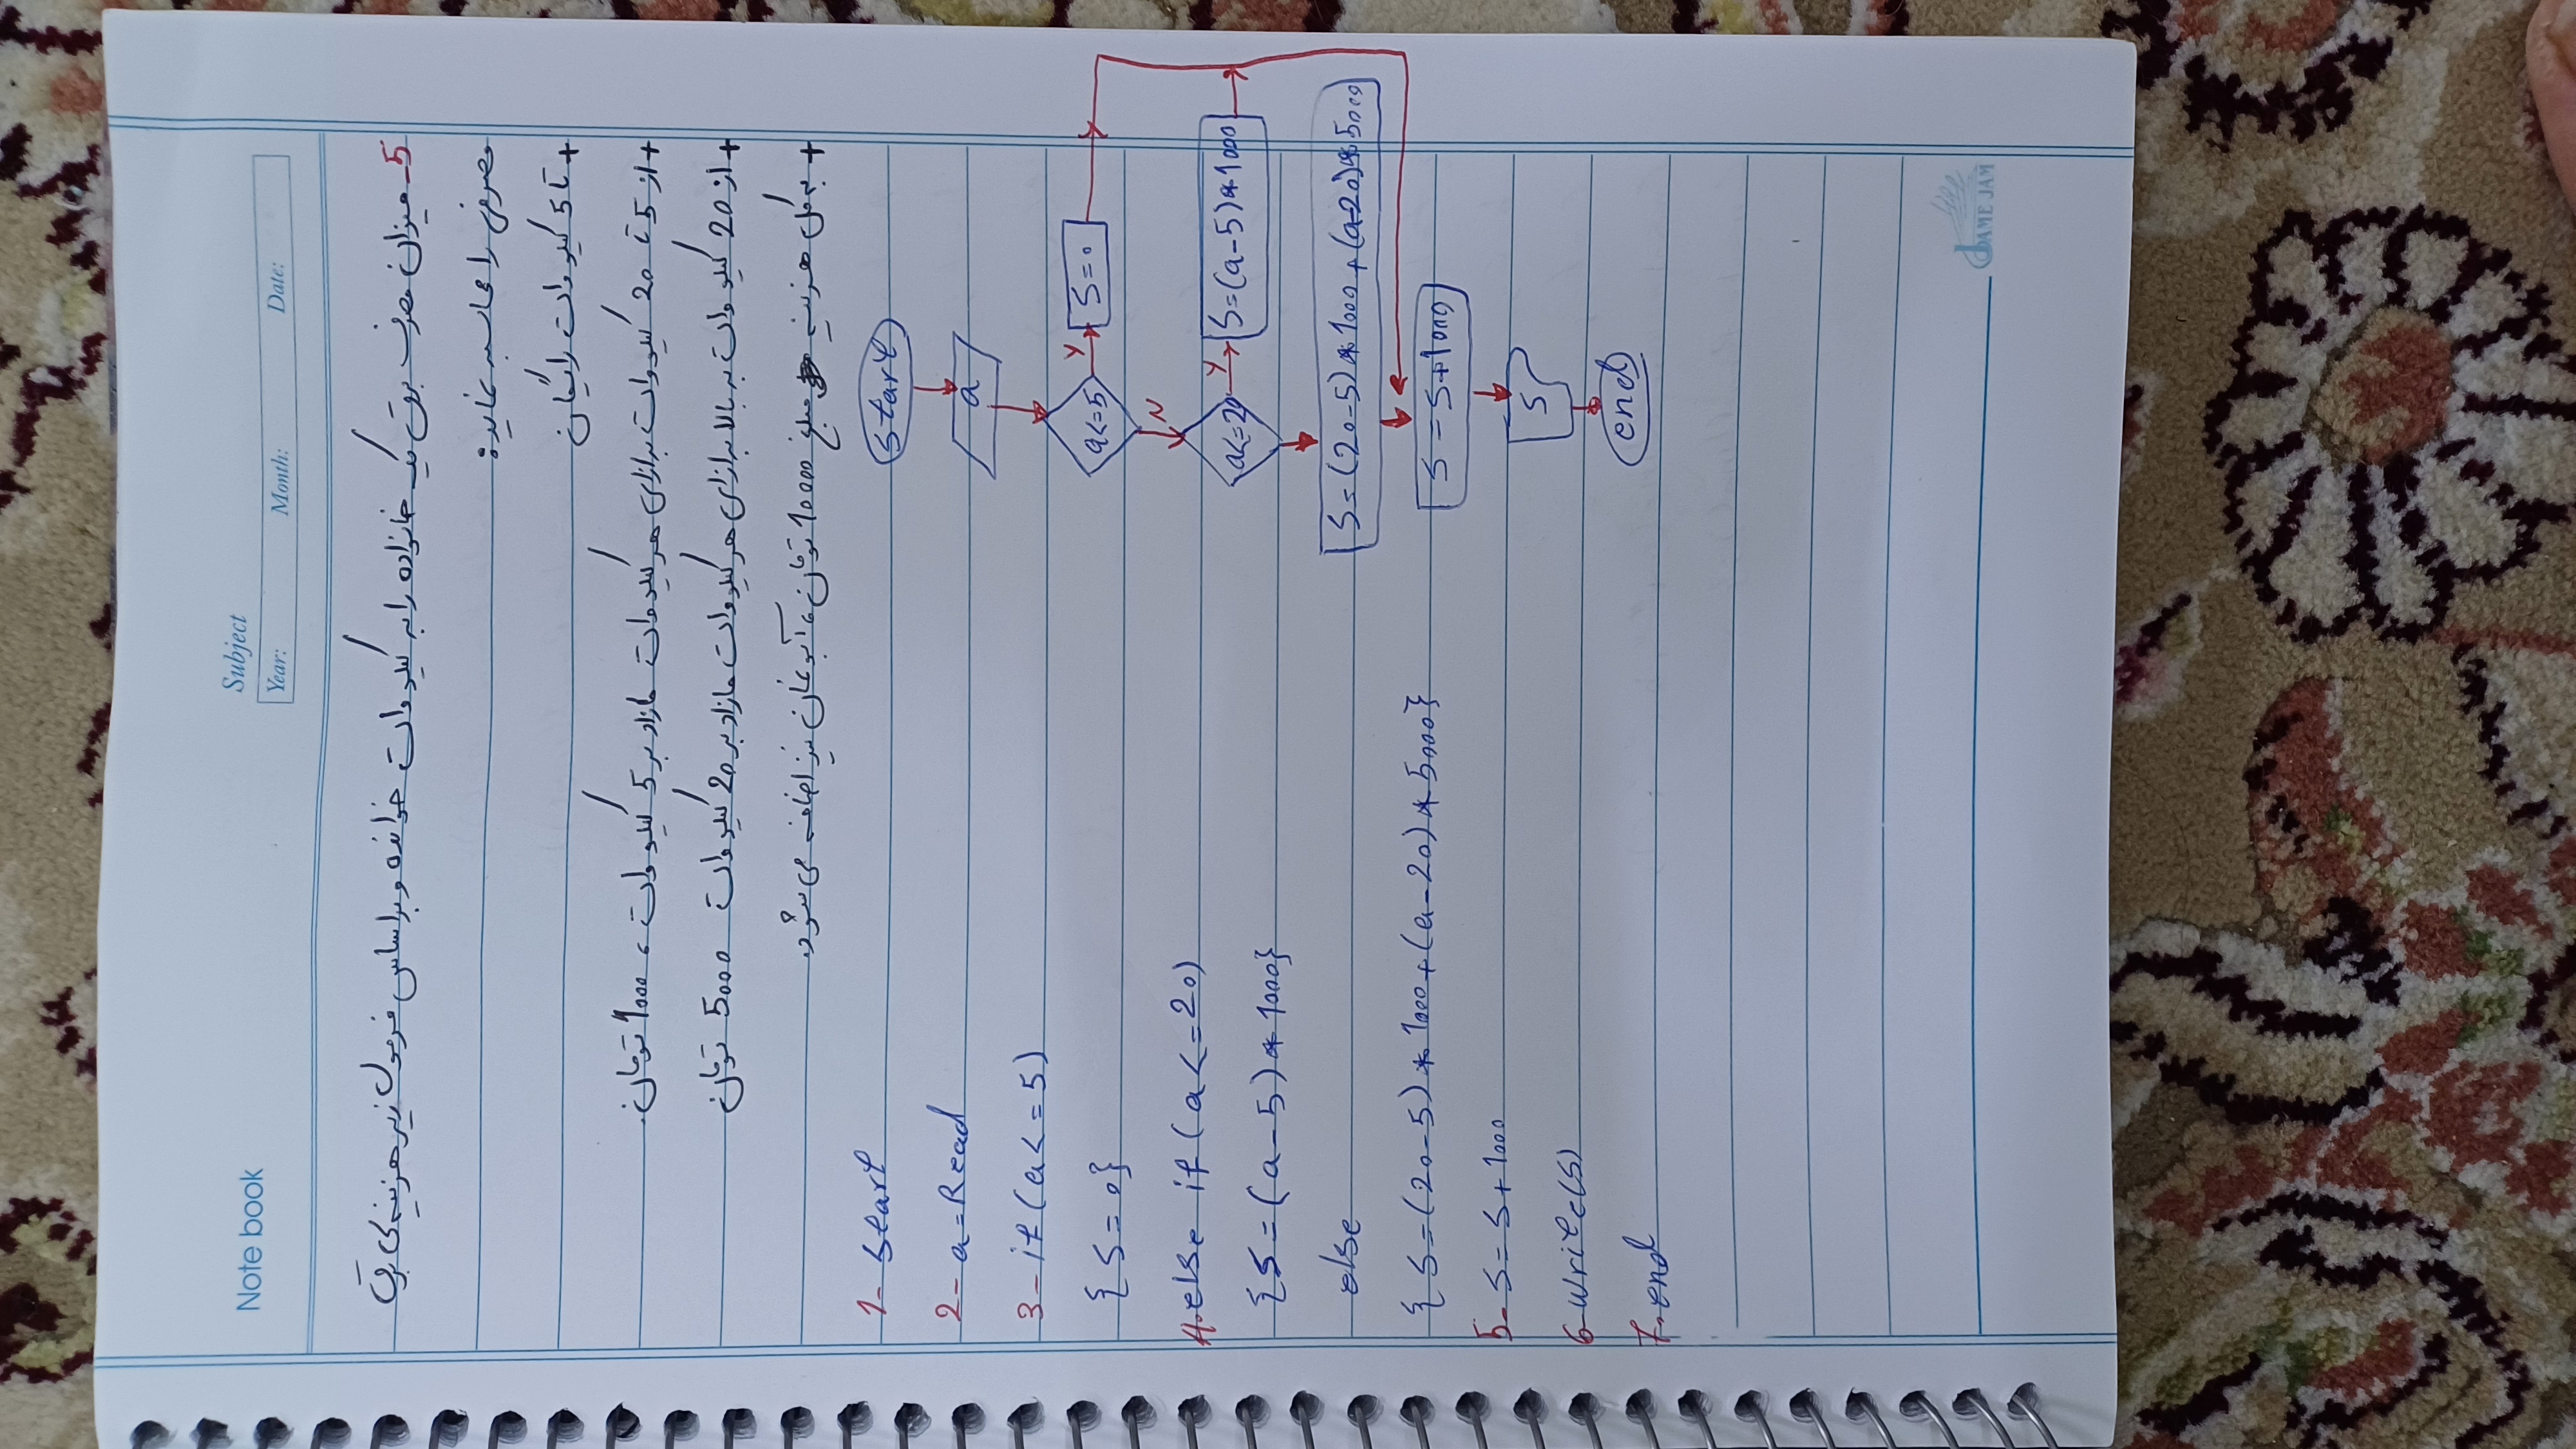 Note book
Subject
Year: Month: Date:
5- میزان مصرف برق یک خانواده را به کیلووات خوانده و براساس فرمول زیر هزینه‌ی برق
مصرفی را محاسبه نمایید:
+ تا 5 کیلووات رائیگان
+ از 5 تا 20 کیلووات برازای هر کیلووات مازاد بر 5 کیلووات، 1000 تومان.
+ از 20 کیلووات به بالا برازای هر کیلووات مازاد بر 20 کیلووات 5000 تومان
+ به کل هزینه مبلغ 10000 تومان، آبونمان نیز اضافه می شود.
1- Start
2- a = Read
3- if (a <= 5)
{ S = 0 }
4- else if (a <= 20)
{ S = (a - 5) * 1000 }
else
{ S = (20 - 5) * 1000 + (a - 20) * 5000 }
5- S = S + 1000
6- write(S)
7- end
Start
a
a<=5
Y
S=0
N
a<=20
Y
S=(a-5)*1000
S=(20-5)*1000+(a-20)*5000
S=S+1000
S
end
JAME JAM